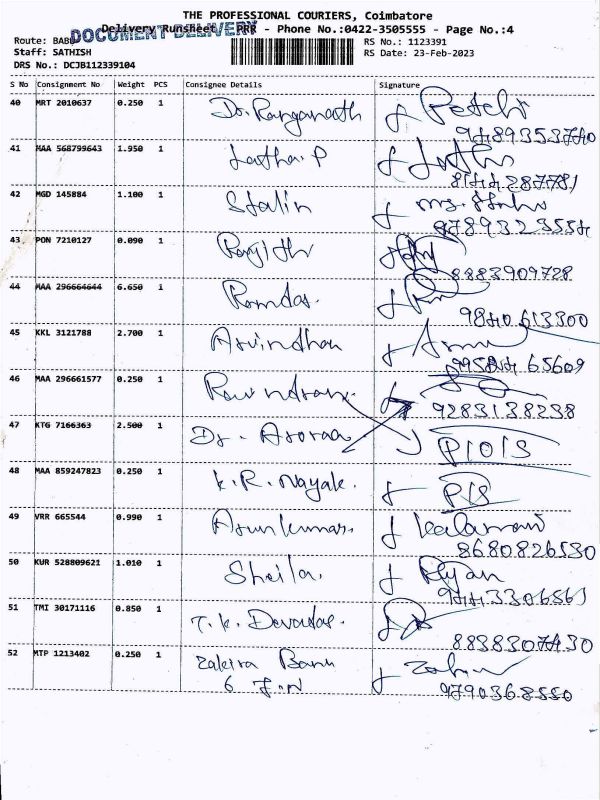 THE PROFESSIONAL COURIERS, Coimbatore
DOCUMENT DELIVERY
Delivery Runsheet PRR - Phone No.:0422-3505555 - Page No.:4
Route: BABU RS No.: 1123391
Staff: SATHISH RS Date: 23-Feb-2023
DRS No.: DCJB112339104
S No Consignment No Weight PCS Consignee Details Signature
40 MRT 2010637 0.250 1 Dr. Ranganath Petchi
9489353740
41 MAA 568799643 1.950 1 Latha.P
8144287781
42 MGD 145884 1.100 1 Stalin
9789323554
43 PON 7210127 0.090 1 Ranjith
8883909728
44 MAA 296664644 6.650 1 Ramdas.
9840613300
45 KKL 3121788 2.700 1 Arvindhan
65609
46 MAA 296661577 0.250 1
9283138238
47 KTG 7166363 2.500 1 Dr.
48 MAA 859247823 0.250 1 K.R. Nayak.
49 VRR 665544 0.990 1 Arunkumar.
8680826530
50 KUR 528809621 1.010 1 Sheila.
9443306561
51 TMI 30171116 0.850 1 T.K. Devadas.
8838307430
52 MTP 1213402 0.250 1 Zakira Banu
9790368550